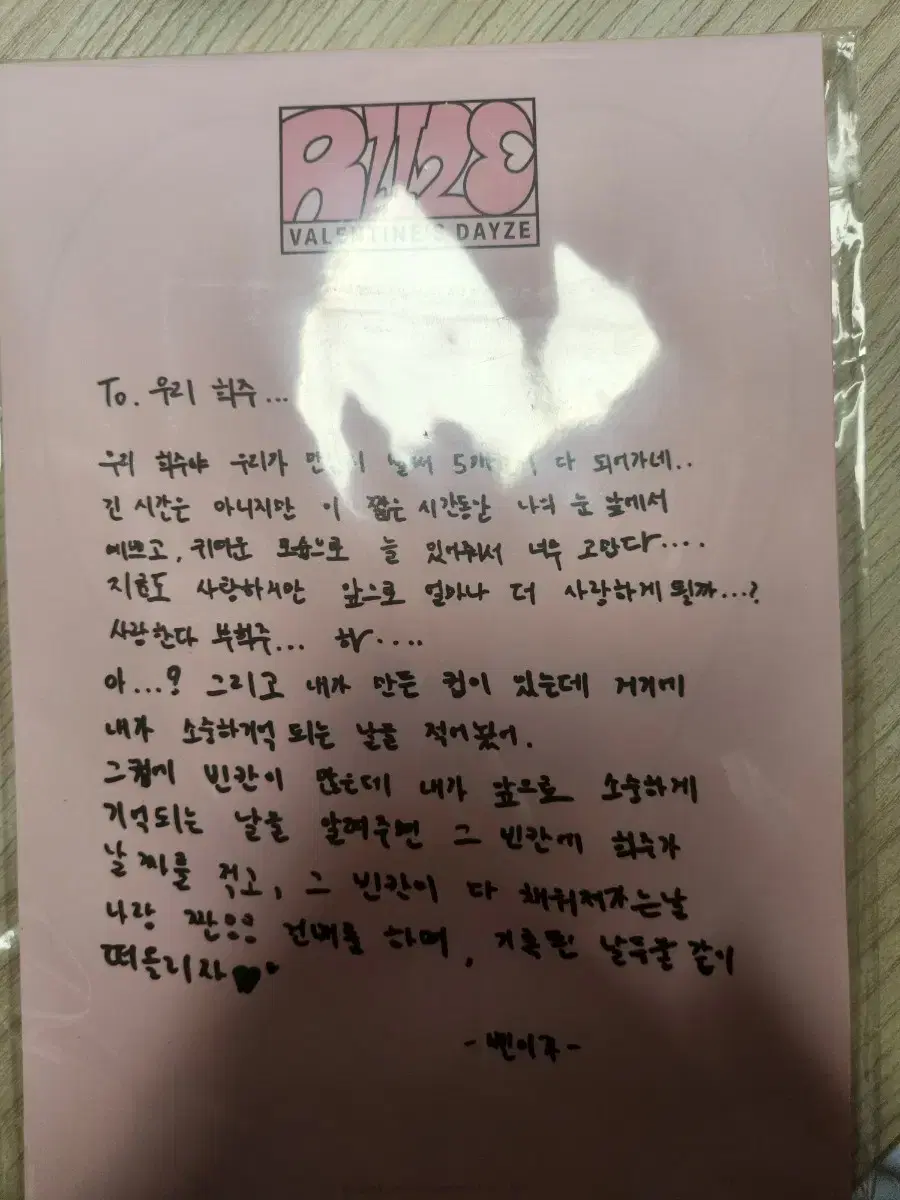 RIIZE
VALENTINE'S DAYZE
To. 우리 희주...
우리 희주야 우리가 벌써 다 되어가네..
긴 시간은 아니지만 이 짧은 시간동안 나의 눈 앞에서
예쁘고, 귀여운 모습으로 늘 있어줘서 너무 고맙다....
지금도 사랑하지만 앞으로 얼마나 더 사랑하게 될까...?
사랑한다 부희주... 하....
아...? 그리고 내가 만든 컵이 있는데 거기에
내가 소중하게 되는 날을 적어놨어.
그컵에 빈칸이 많은데 내가 앞으로 소중하게
기억되는 날을 알려주면 그 빈칸에 희주가
날짜를 적고, 그 빈칸이 다 채워져가는날
나랑 짠 건배를 하며, 기록된 날들을 같이
떠올리자♥